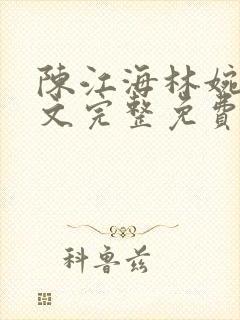 陳江海林婉
文完整免費
科魯茲